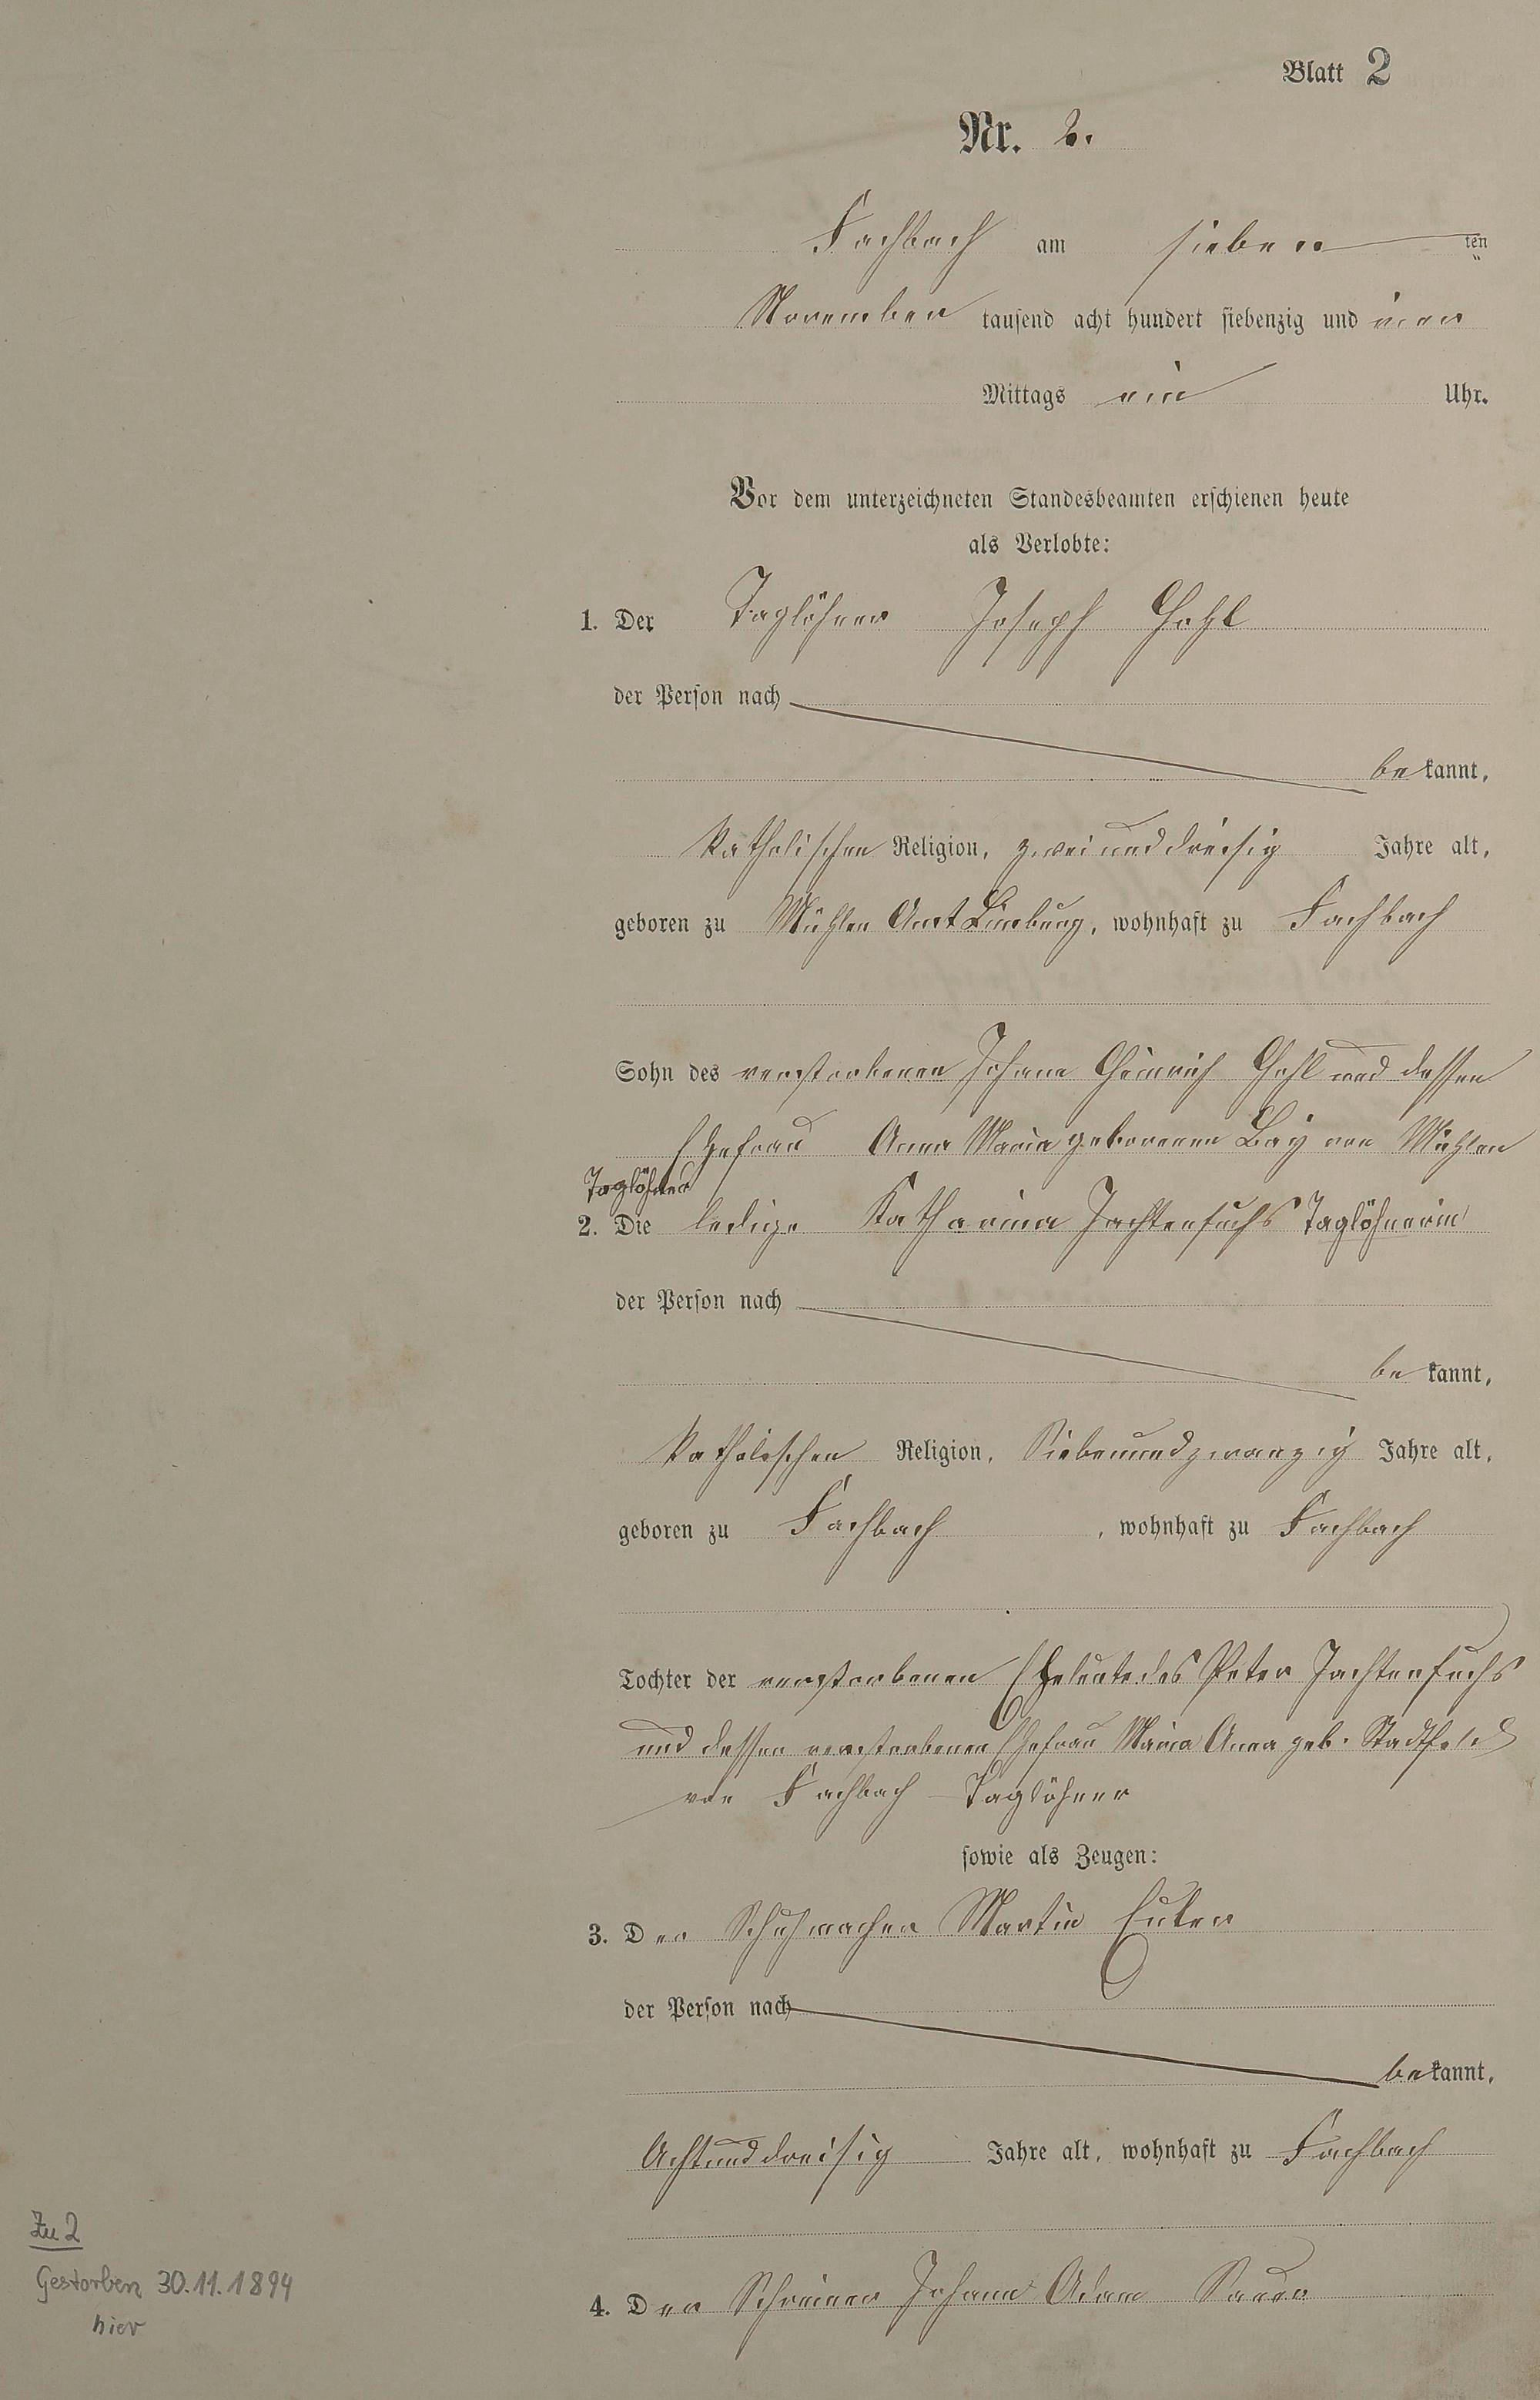 Blatt 2
Nr. 2.
Fachbach am sieben ten
November tausend acht hundert siebenzig und vier
Mittags ein Uhr.
Vor dem unterzeichneten Standesbeamten erschienen heute
als Verlobte:
1. Der Taglöhner Joseph Hohl
der Person nach
be kannt,
Katholischen Religion, zweiunddreisig Jahre alt,
geboren zu Mühlen Amt Limburg, wohnhaft zu Fachbach
Sohn des verstorbenen Johann Heinrich Hohl und dessen
Ehefrau Anna Maria geborenen Bay von Mühlen
Taglöhner
2. Die ledige Katharina Jachtenfuchs Taglöhnerin
der Person nach
be kannt,
Katholischen Religion, Siebenundzwanzig Jahre alt,
geboren zu Fachbach, wohnhaft zu Fachbach
Tochter der verstorbenen Eheleute des Peter Jachtenfuchs
und dessen verstorbenen Ehefrau Maria Anna geb. Stadtfeld
von Fachbach Taglöhner
sowie als Zeugen:
3. Der Schuhmacher Martin Euker
der Person nach
be kannt,
Achtunddreisig Jahre alt, wohnhaft zu Fachbach
4. Der Schreiner Johann Adam Sauer
Zu 2
Gestorben 30.11.1894
hier